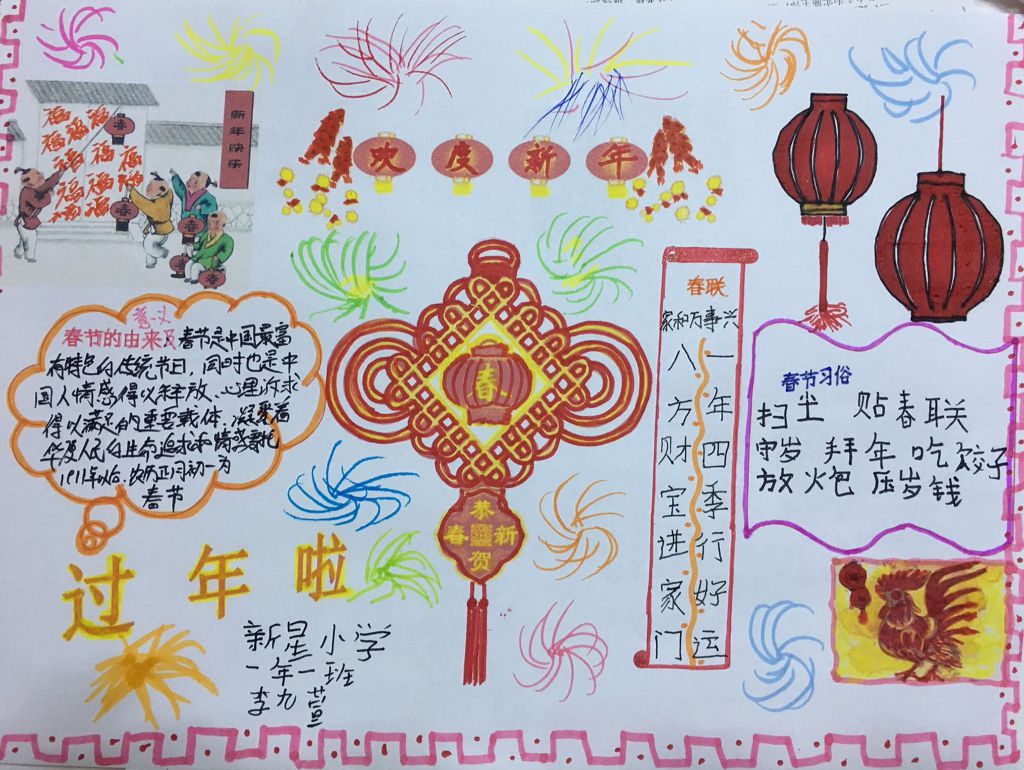 福 福 福 福
福 福 福 福
春
新年快乐
欢度新年
春节的由来及意义
春节是中国最富
有特色的传统节日,同时也是中
国人情感得以释放、心理诉求
得以满足的重要载体,凝聚着
华夏人民的生命追求和情感寄托
1911年以后,农历正月初一为
春节
春
恭
春 新
贺
春联
家和万事兴
一年四季行好运
八方财宝进家门
春节习俗
扫尘 贴春联
守岁 拜年 吃饺子
放火炮 压岁钱
过年啦
新星小学
一年一班
李九萱